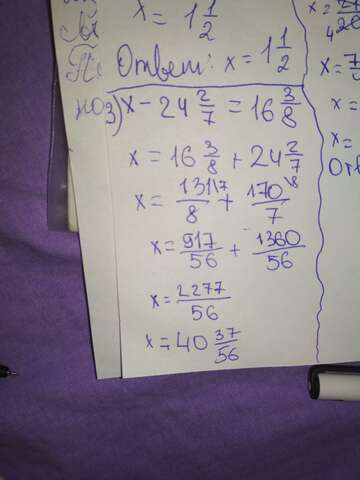 x = 1 1/2
Ответ: x = 1 1/2
3) x - 24 2/7 = 16 3/8
x = 16 3/8 + 24 2/7
x = 131\7/8 + 170\8/7
x = 917/56 + 1360/56
x = 2277/56
x = 40 37/56
x =
x =
x =